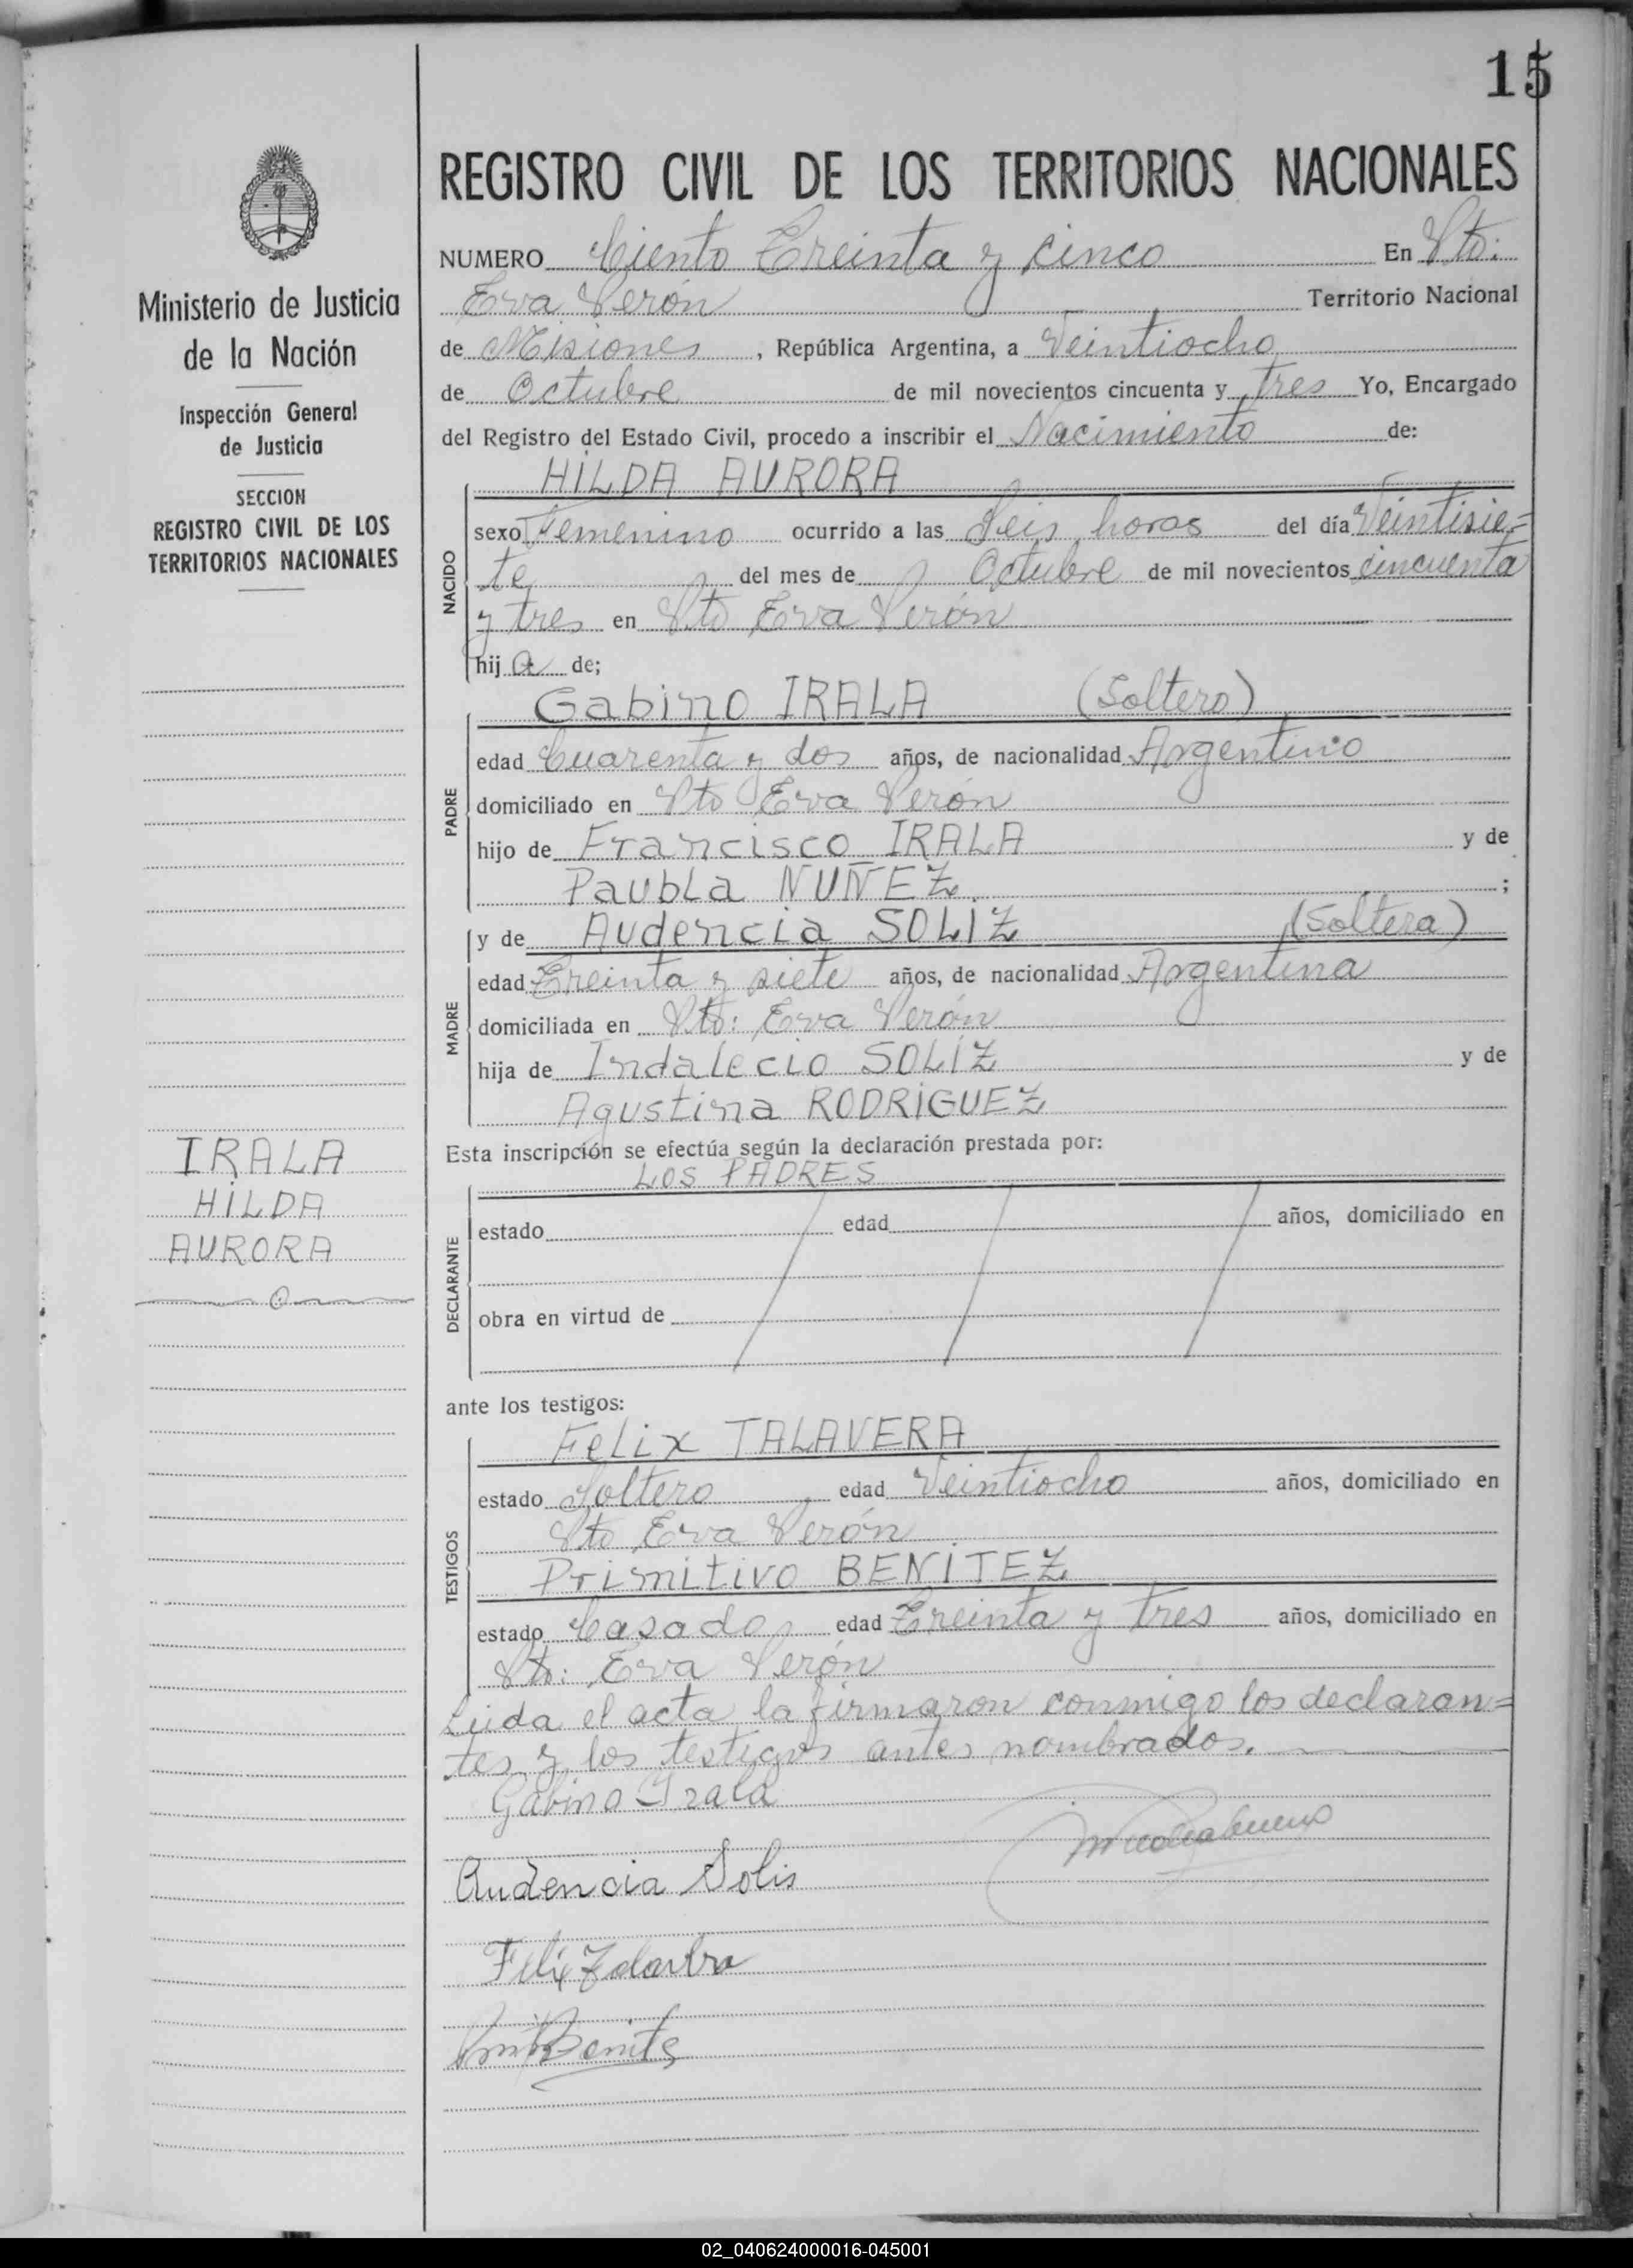 15
REGISTRO CIVIL DE LOS TERRITORIOS NACIONALES
Ministerio de Justicia
de la Nación
Inspección General
de Justicia
SECCION
REGISTRO CIVIL DE LOS
TERRITORIOS NACIONALES
IRALA
HILDA
AURORA
NUMERO Ciento Treinta y cinco En Pto:
Eva Perón Territorio Nacional
de Misiones, República Argentina, a Veintiocho
de Octubre de mil novecientos cincuenta y tres Yo, Encargado
del Registro del Estado Civil, procedo a inscribir el Nacimiento de:
NACIDO
HILDA AURORA
sexo Femenino ocurrido a las Seis horas del día Veintisie=
te del mes de Octubre de mil novecientos cincuenta
y tres en Pto Eva Perón
hij a de;
PADRE
Gabino IRALA (Soltero)
edad Cuarenta y dos años, de nacionalidad Argentino
domiciliado en Pto Eva Perón
hijo de Francisco IRALA y de
Paubla NUÑEZ ;
MADRE
y de Audencia SOLIZ (Soltera)
edad Treinta y siete años, de nacionalidad Argentina
domiciliada en Pto: Eva Perón
hija de Indalecio SOLIZ y de
Agustina RODRIGUEZ
Esta inscripción se efectúa según la declaración prestada por:
DECLARANTE
LOS PADRES
estado edad años, domiciliado en
obra en virtud de
ante los testigos:
TESTIGOS
Felix TALAVERA
estado Soltero edad Veintiocho años, domiciliado en
Pto Eva Perón
Primitivo BENITEZ
estado Casado edad Treinta y tres años, domiciliado en
Pto: Eva Perón
Leida el acta la firmaron conmigo los declaran=
tes y los testigos antes nombrados.
Gabino Irala
Audencia Solis
Felix
02_040624000016-045001